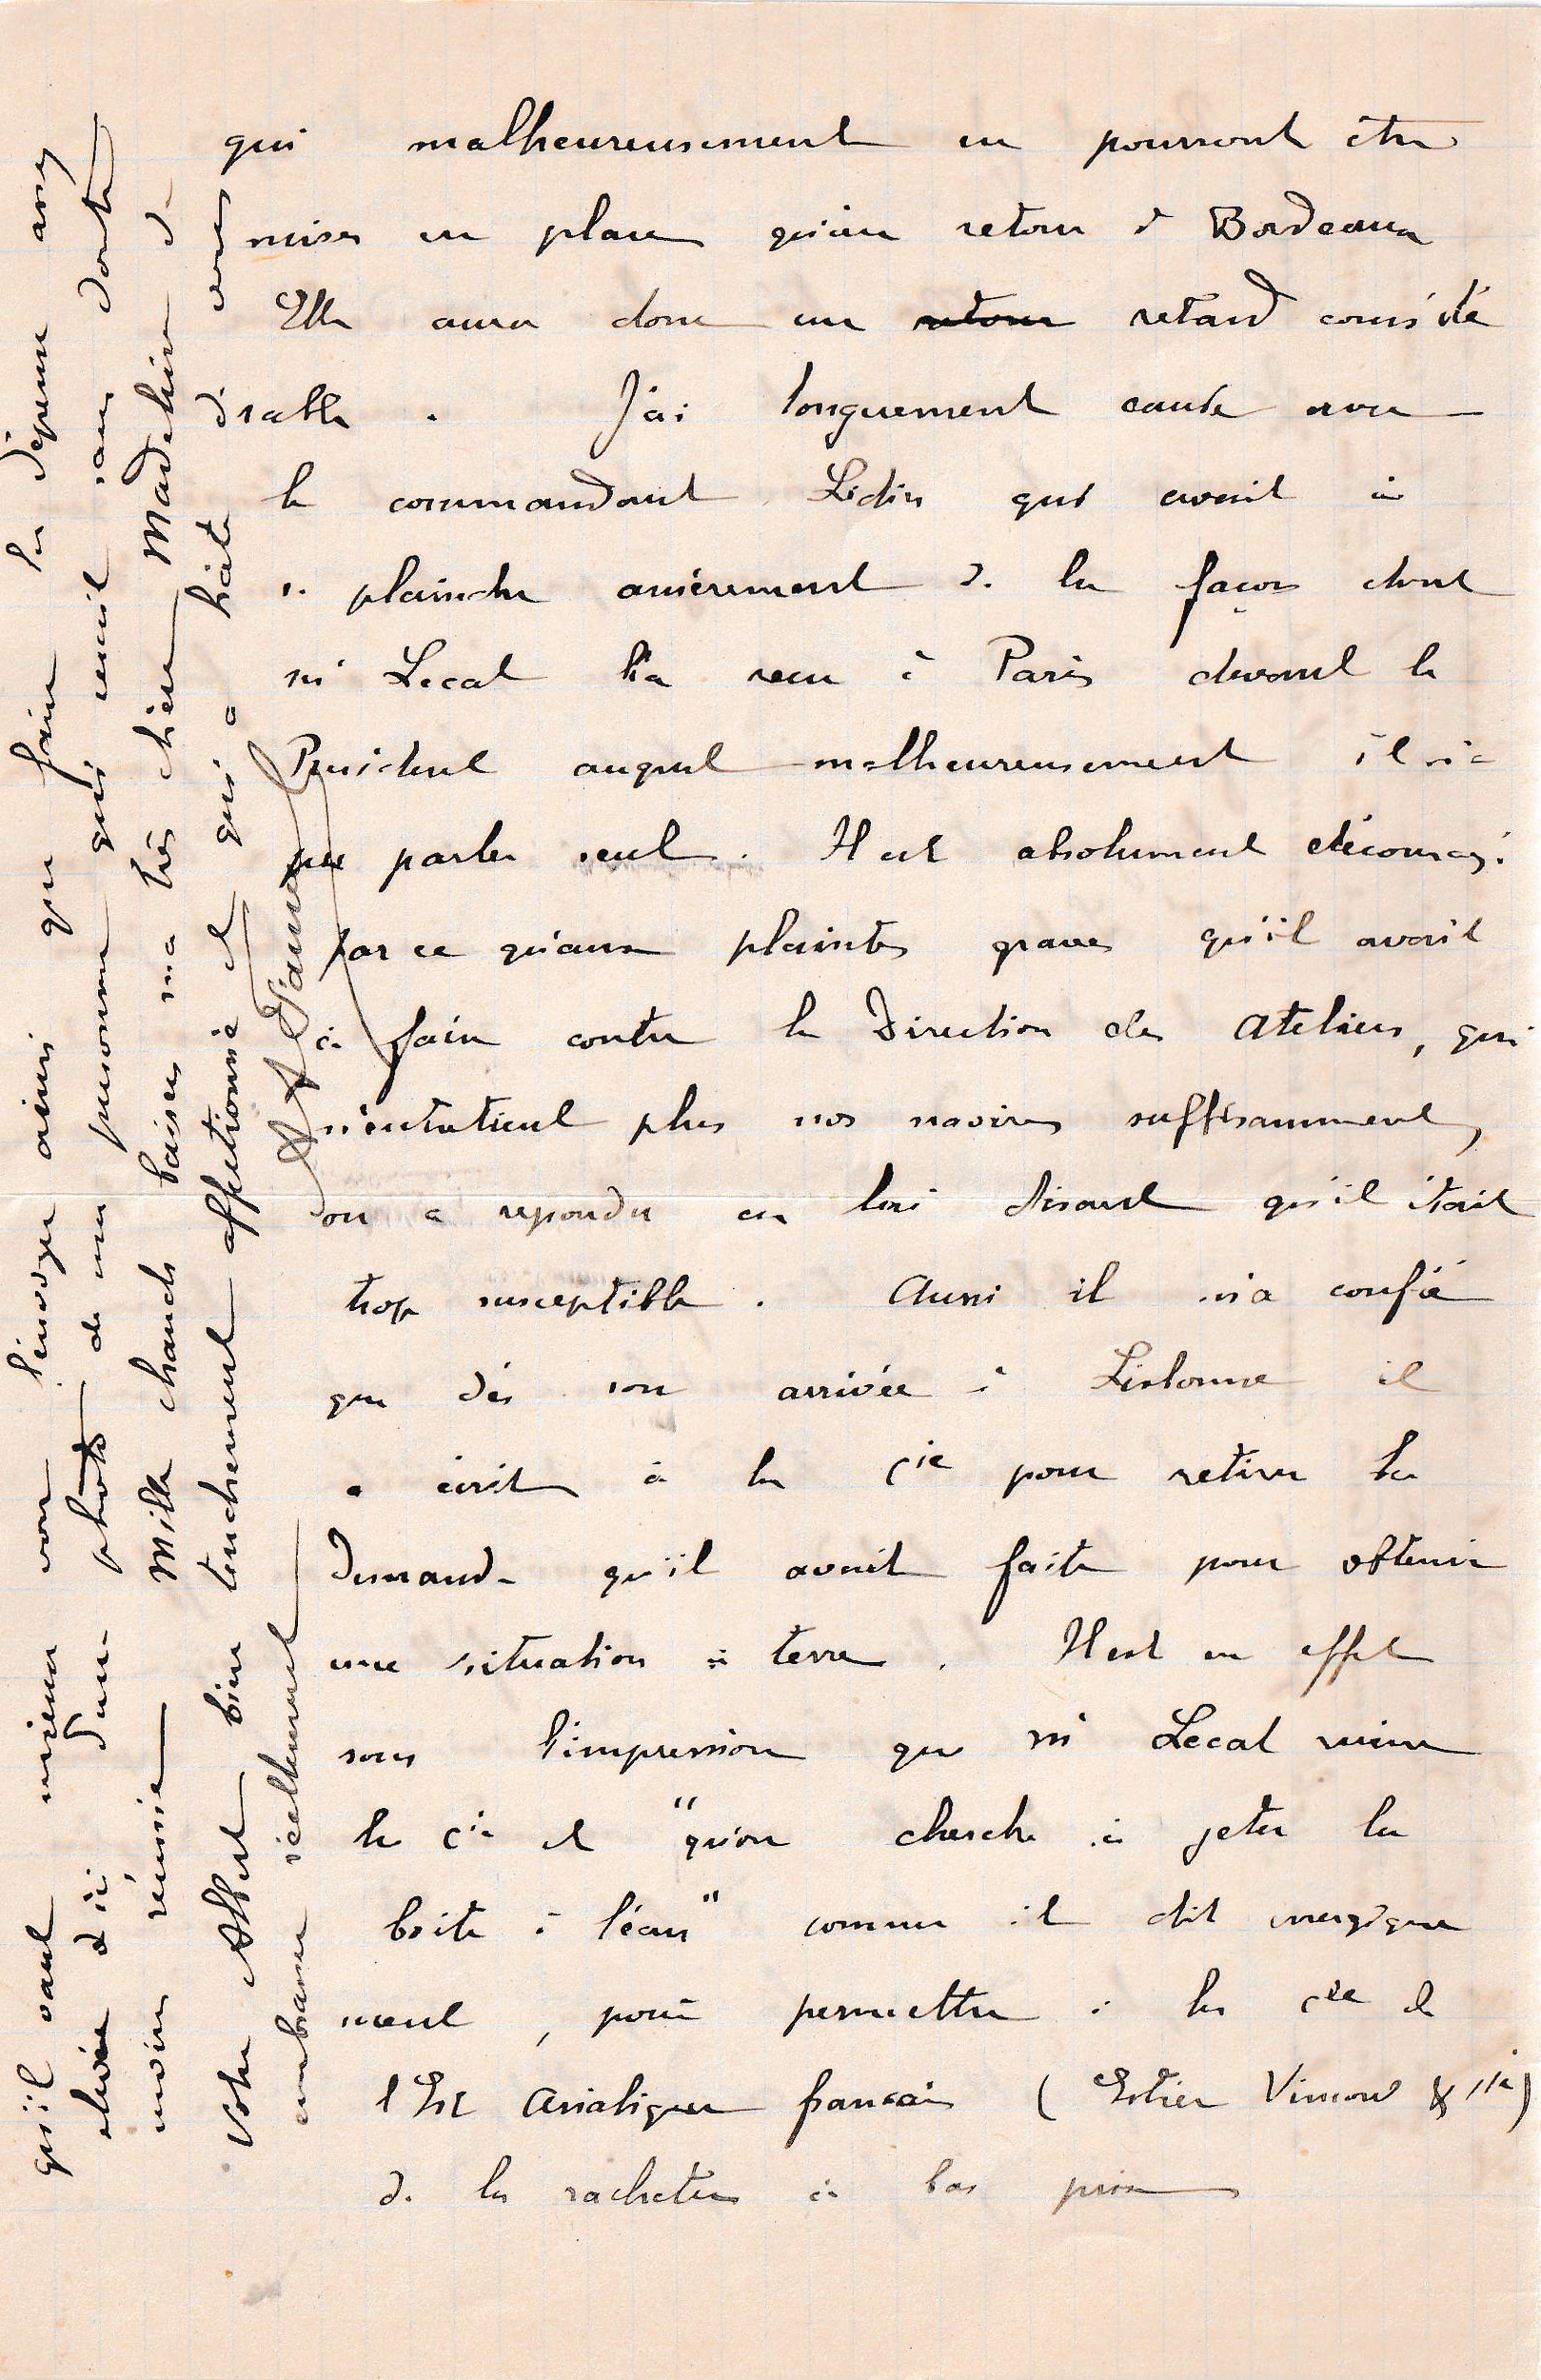 qui malheureusement ne pourront être
mises en place qu'au retour à Bordeaux
Elle aura donc un retour retard considé
rable. J'ai longuement causé avec
le commandant Lidin qui avait à
se plaindre amèrement de la façon dont
Mr Lecat l'a reçu à Paris devant le
Président auquel malheureusement il n'a
pu parler seul. Il est absolument découragé
parce qu'aux plaintes graves qu'il avait
à faire contre la Direction des Ateliers, qui
n'entretient plus nos navires suffisamment,
on a répondu en lui disant qu'il était
trop susceptible. Aussi il m'a confié
que dès son arrivée à Lisbonne il
a écrit à la Cie pour retirer la
Demande qu'il avait faite pour obtenir
une situation à terre. Il est en effet
sous l'impression que Mr Lecat ruine
la Cie et "qu'on cherche à jeter la
boite à l'eau" comme il dit énergique
ment, pour permettre à la Cie de
l'Est Asiatique français (Estier Vimont & Cie)
de la racheter à bas prix
qu'il vaut mieux vous l'envoyer ainsi que faire la dépense assez
élevée d'ici d'une photo de ma personne qui serait sans doute
moins réussie Mille chauds baisers ma très chère Madeleine de
votre Albert bien tendrement affectionné et qui a hâte de vous
embrasser réellement